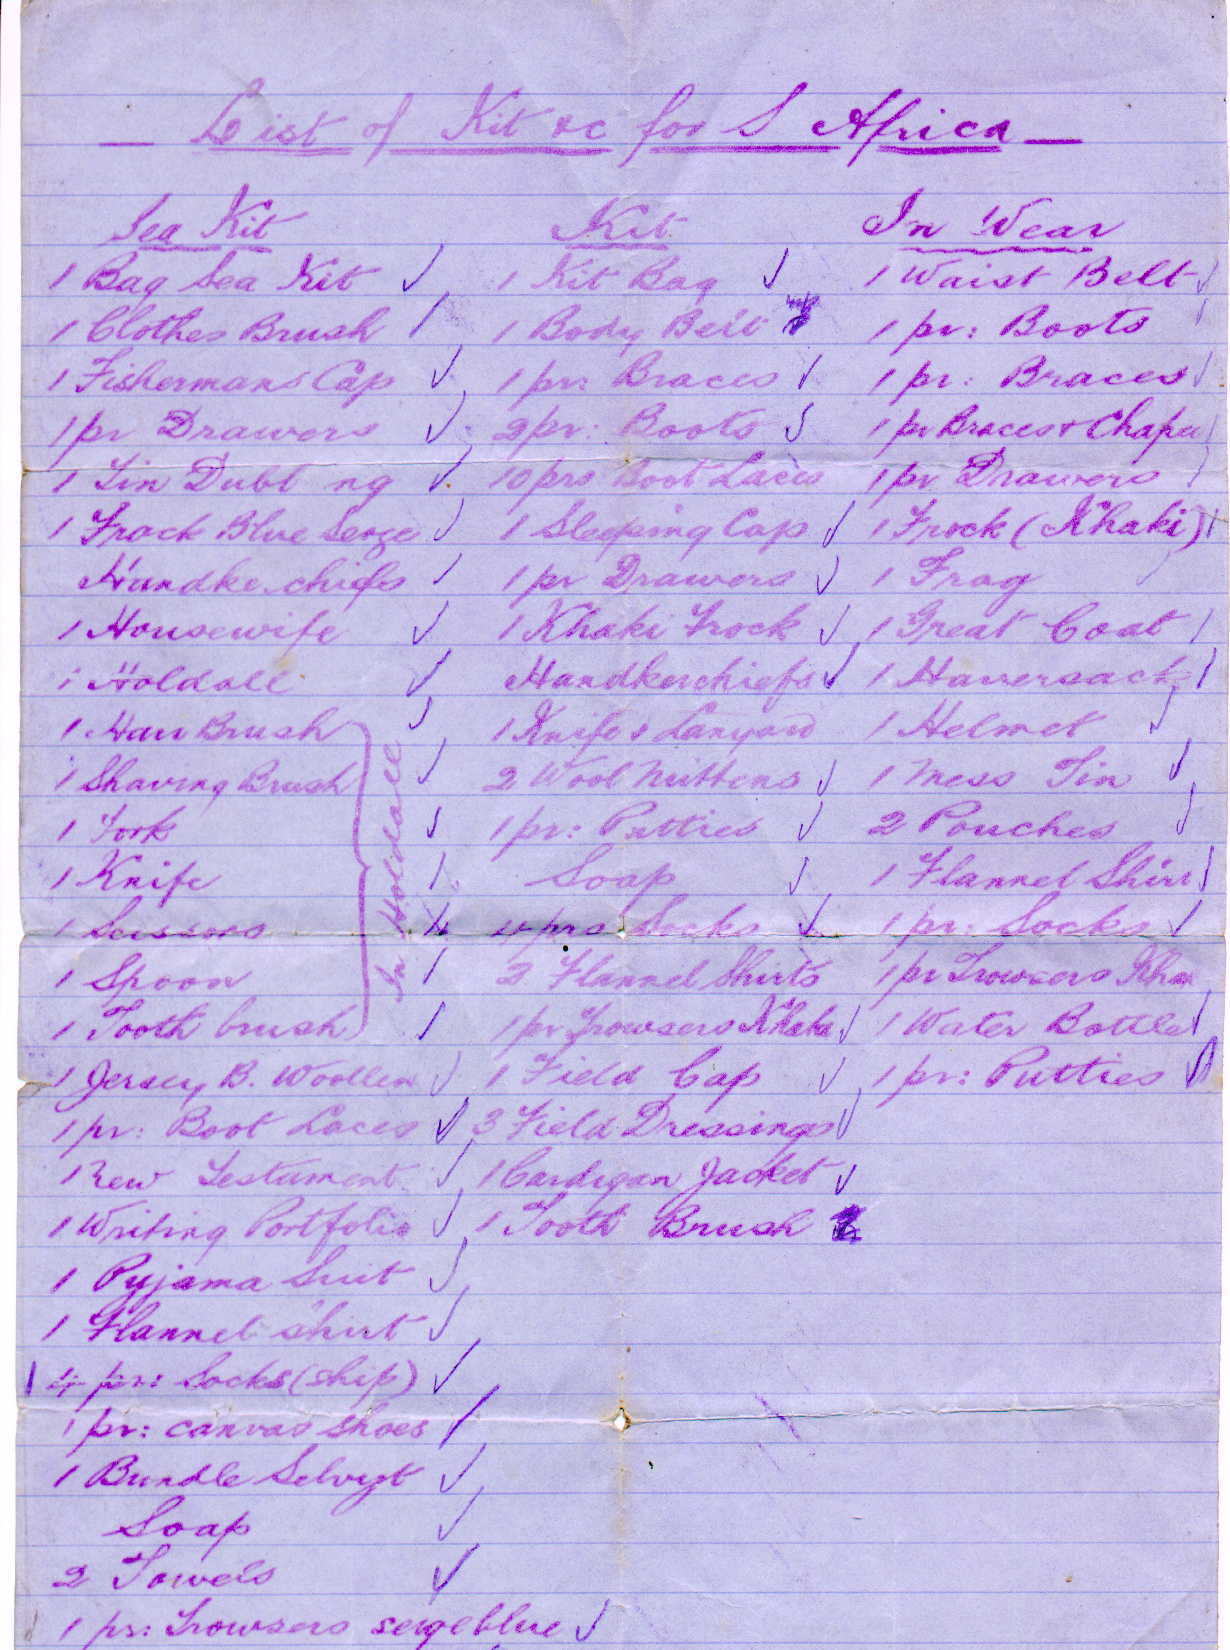 List of Kit &c for S Africa
Sea Kit
1 Bag Sea Kit
1 Clothes Brush
1 Fishermans Cap
1 pr Drawers
1 Tin Dubbing
1 Frock Blue Serge
Handkerchiefs
1 Housewife
1 Holdall
1 Hair Brush
1 Shaving Brush
1 Fork
1 Knife
1 Scissors
1 Spoon
1 Tooth brush
In Holdall
1 Jersey B. Woollen
1 pr: Boot Laces
1 New Testament
1 Writing Portfolio
1 Pyjama Suit
1 Flannel Shirt
1 4 pr: Socks (ship)
1 pr: canvas shoes
1 Bundle Selvyt
Soap
2 Towels
1 pr: Trowsers serge blue
Kit
1 Kit Bag
1 Body Belt
1 pr: Braces
2 pr: Boots
10 prs Boot Laces
1 Sleeping Cap
1 pr Drawers
1 Khaki Frock
Handkerchiefs
1 Knife & Lanyard
2 Wool Mittens
1 pr: Putties
Soap
4 prs Socks
2 Flannel Shirts
1 pr Trowsers Khaki
1 Field Cap
3 Field Dressings
1 Cardigan Jacket
1 Tooth Brush
In Wear
1 Waist Belt
1 pr: Boots
1 pr: Braces
1 pr Braces &
1 pr Drawers
1 Frock (Khaki)
1 Frog
1 Great Coat
1 Haversack
1 Helmet
1 Mess Tin
2 Pouches
1 Flannel Shirt
1 pr: Socks
1 pr Trowsers Kha
1 Water Bottle
1 pr: Putties